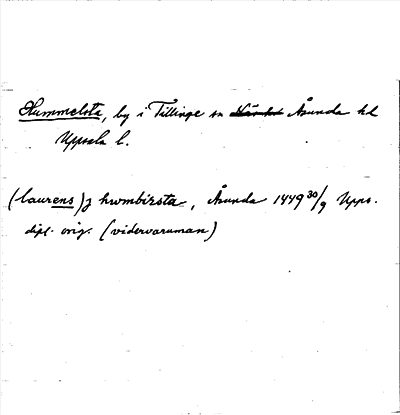 Hummelsta, by i Tillinge sn Åsunda hd
Uppsala l.
(laurens) j hwmbirsta, Åsunda 1449 30/9 Upps.
dipl. orig. (vidervaruman)